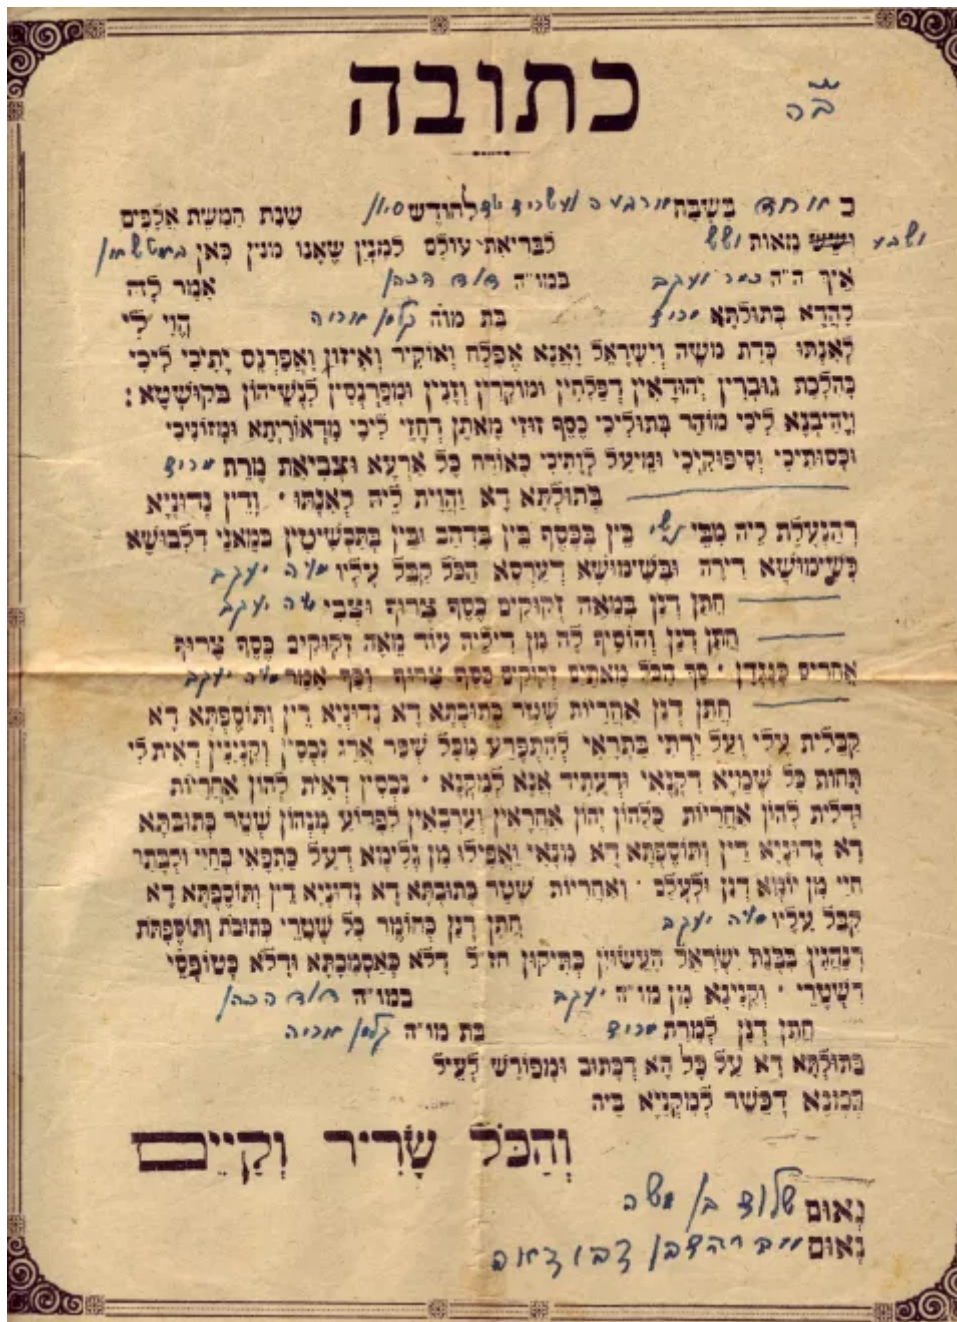 ב״ה
כתובה
ב אחד בשבת ארבעה ועשרים יום לחודש סיון שנת חמשת אלפים
ושבע ושש מאות ושש לבריאת עולם למנין שאנו מנין כאן
איך ה״ה יעקב במו״ה דוד הכהן אמר לה
להדא בתולתא מרים בת מו״ה קלמן אריה הוי לי
לאנתו כדת משה וישראל ואנא אפלח ואוקיר ואיזון ואפרנס יתיכי ליכי
כהלכת גוברין יהודאין דפלחין ומוקרין וזנין ומפרנסין לנשיהון בקושטא:
ויהיבנא ליכי מוהר בתוליכי כסף זוזי מאתן דחזי ליכי מדאוריתא ומזוניכי
וכסותיכי וסיפוקיכי ומיעל לותיכי כאורח כל ארעא וצביאת מרת מרים
בתולתא דא והות ליה לאנתו ׳ ודין נדוניא
דהנעלת ליה מבי נשי בין בכסף בין בדהב ובין בתכשיטין במאני דלבושא
בשימושא דירה ובשימושא דערסא הכל קבל עליו מו״ה יעקב
חתן דנן במאה זקוקים כסף צרוף וצבי מו״ה יעקב
חתן דנן והוסיף לה מן דיליה עוד מאה זקוקים כסף צרוף
אחרים כנגדן ׳ סך הכל מאתים זקוקים כסף צרוף וכך אמר מו״ה יעקב
חתן דנן אחריות שטר כתובתא דא נדוניא דין ותוספתא דא
קבלית עלי ועל ירתי בתראי להתפרע מכל שפר ארג נכסין וקנינין דאית לי
תחות כל שמיא דקנאי ודעתיד אנא למקנא ׳ נכסין דאית להון אחריות
ודלית להון אחריות כלהון יהון אחראין וערבאין לפרוע מנהון שטר כתובתא
דא נדוניא דין ותוספתא דא מנאי ואפילו מן גלימא דעל כתפאי בחיי ולבתר
חיי מן יומא דנן ולעלם ׳ ואחריות שטר כתובתא דא נדוניא דין ותוספתא דא
קבל עליו מו״ה יעקב חתן דנן כחומר כל שטרי כתובת ותוספתת
דנהגין בבנת ישראל העשוין כתיקון חז״ל דלא כאסמכתא ודלא כטופסי
דשטרי ׳ וקנינא מן מו״ה יעקב במו״ה דוד הכהן
חתן דנן למרת מרים בת מו״ה קלמן אריה
בתולתא דא על כל הא דכתוב ומפורש לעיל
במנא דכשר למקניא ביה
והכל שריר וקיים
נאום בן משה
נאום